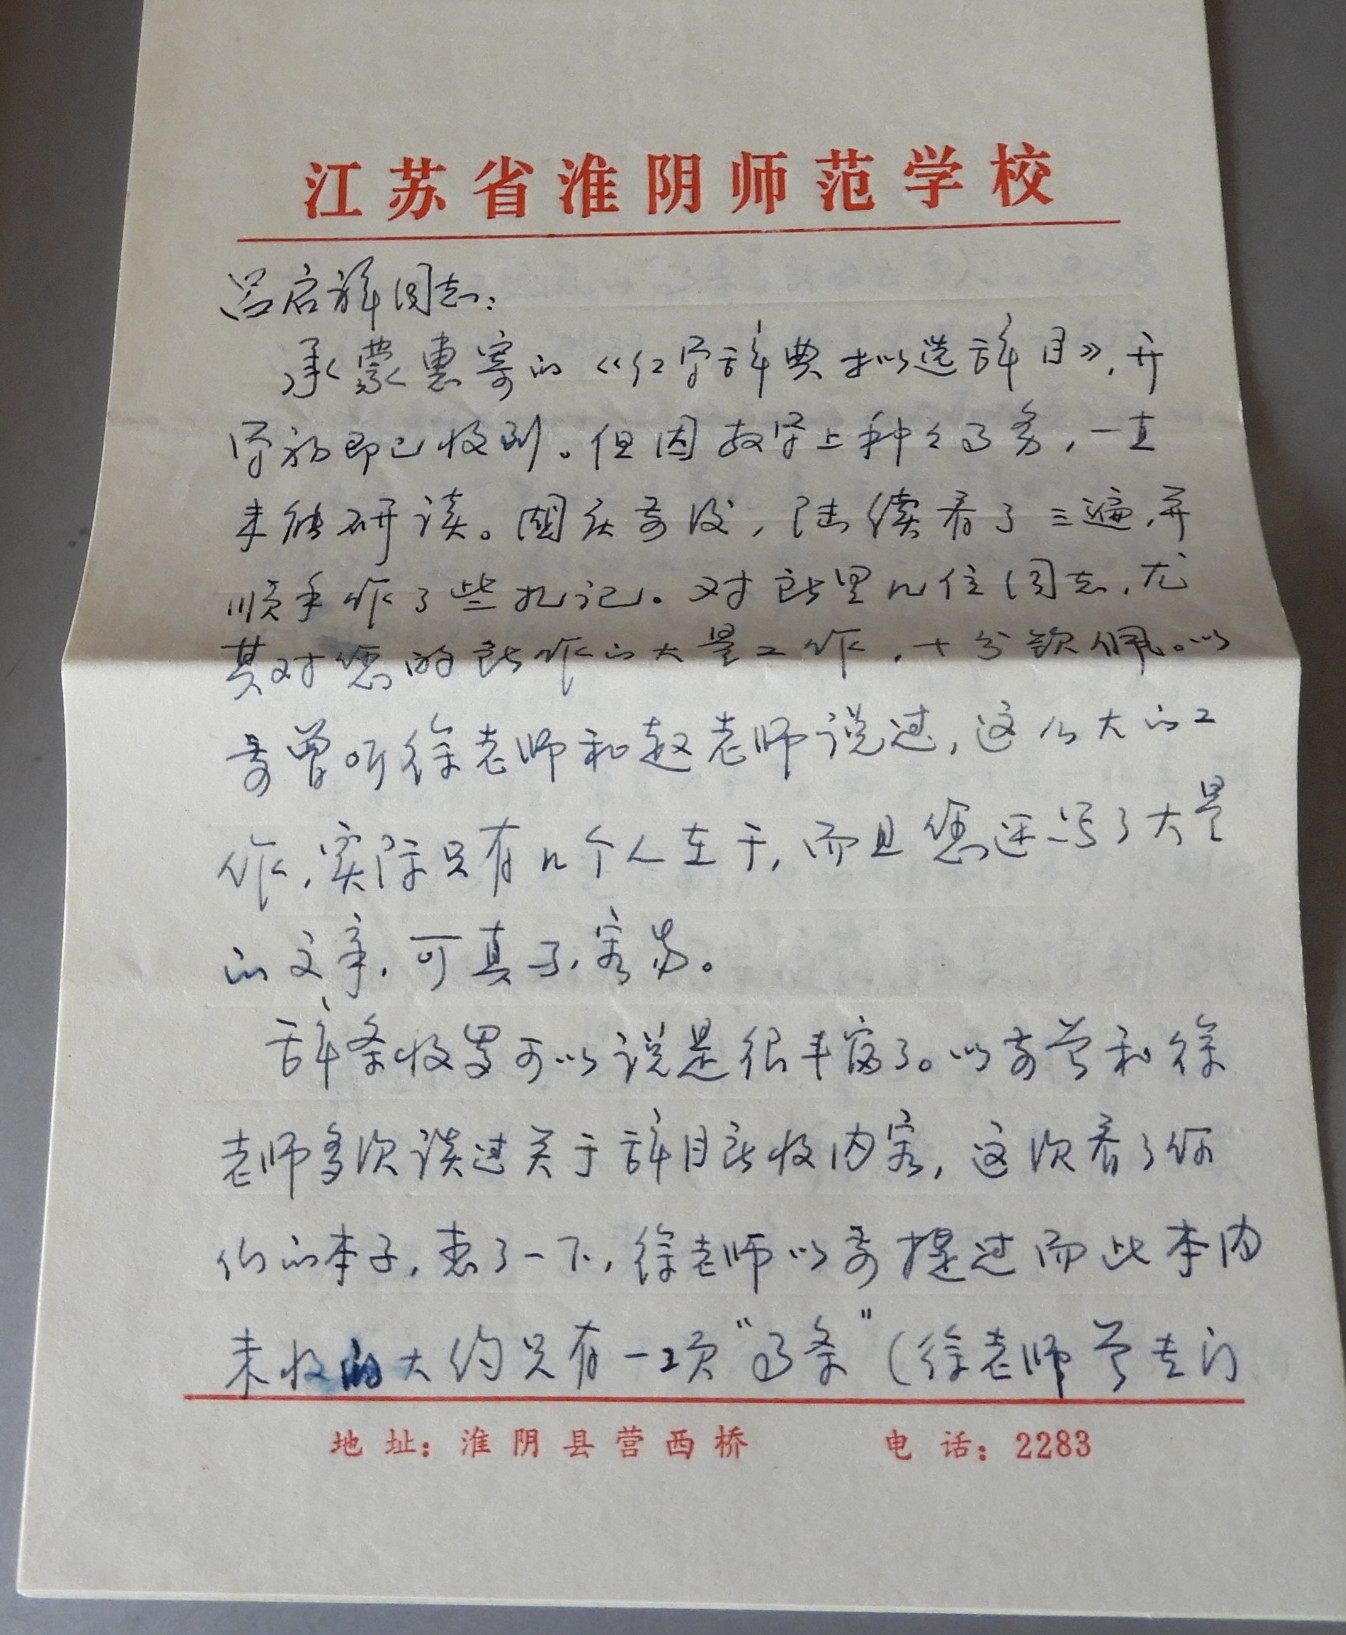 江苏省淮阴师范学校
吕启祥同志：
承蒙惠寄的《红学辞典拟选辞目》，开
学初即已收到。但因教学上种种事务，一直
未能研读。国庆前后，陆续看了三遍，并
顺手作了些札记。对所里几位同志，尤
其对您的所作的大量工作，十分钦佩。以
前曾听徐老师和赵老师说过，这么大的工
作，实际只有几个人在干，而且您还写了大量
的文章，可真不容易。
辞条收罗可以说是很丰富了。以前曾和徐
老师多次谈过关于辞目所收内容，这次看了你
们的本子，查了一下，徐老师以前提过而此本内
未收的大约只有一项“事条”（徐老师曾专门
地址：淮阴县营西桥 电话：2283